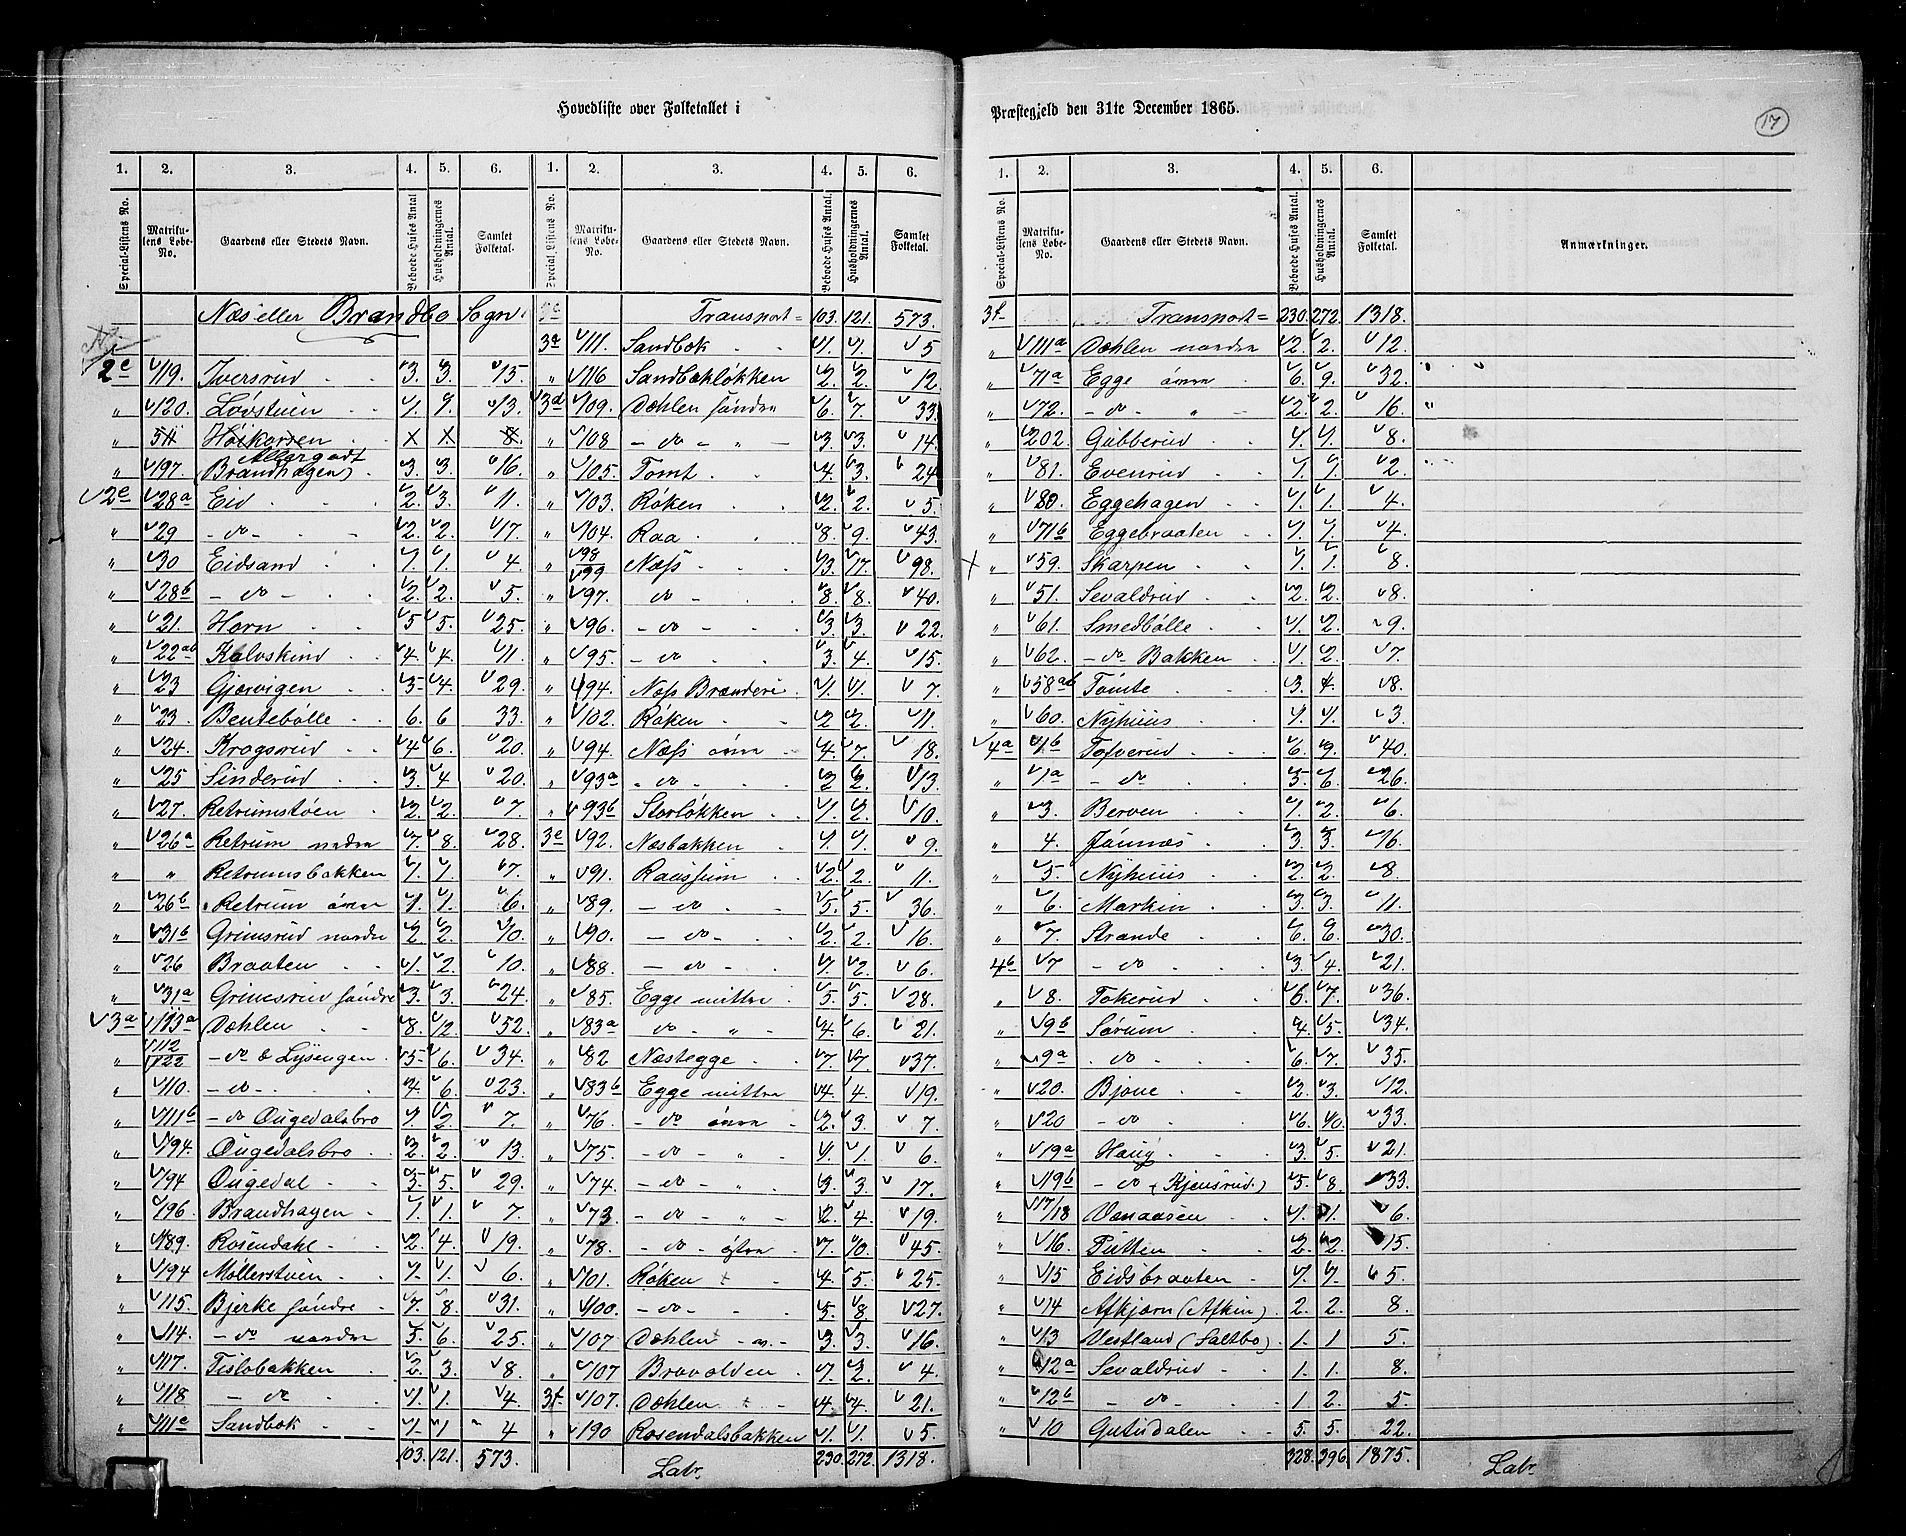 Hovedliste over Folketallet i
Præstegjeld den 31te December 1865.
17
1. 2. 3. 4. 5. 6. 1. 2. 3. 4. 5. 6.
Special-Listens No. Matrikulens Løbe-No. Gaardens eller Stedets Navn. Beboede Huses Antal Husholdningernes Antal. Samlet Folketal. Special-Listens No. Matrikulens Løbe-No. Gaardens eller Stedets Navn. Beboede Huses Antal. Husholdningernes Antal Samlet Folketal
Næs eller Brandbo Sogn.
2c 119. Iversrud 3. 3. 15.
" 120. Løvstuen 1. 1. 13.
" 54 Høikorsen X X 8.
" 197. Allergodt (Brandhagen) 3. 3. 16.
2e 28a Eid 2. 3. 11.
" 29 - do - 2. 2. 17.
" 30 Eidsand 1. 1. 4.
" 28b - do - 2. 2. 5.
" 21. Horn 5. 5. 25.
" 22ab Kalvskind 4. 4. 11.
" 23 Gjærvigen 3. 4. 29.
" 23. Bentebølle 6. 6 33.
" 24. Krogsrud 4. 6. 20.
" 25 Sinderud 3. 4 20.
" 27. Retrumstøen 2. 2. 7.
" 26a Retrum nedre 7. 8. 28.
" " Retrumsbakken 1. 1. 7.
" 26b Retrum øvre 1. 1. 6.
" 31b Grimsrud nordre 2 2. 10.
" 26 Braaten 1. 2. 10.
" 31a Grimsrud søndre 3. 3. 24.
3a 113a Dæhlen 8. 12 52.
" 112 122 - do & Lysengen 5. 6. 34.
" 110. - do - 4. 6. 23.
" 111b - do Ougedalsbro 1. 2. 7.
" 194. Ougedalsbro 2. 2. 13.
" 194 Ougedal 5. 5. 29.
" 196. Brandhagen 1. 1. 7.
" 189. Rosendahl 2. 4. 19.
" 194 Møllerstuen 1. 1. 6.
" 115. Bjerke søndre 7. 8. 31.
" 114. - do nordre 5. 6. 25.
" 117. Tislobakken 2. 3. 8.
" 118 - do 1. 1. 4.
" 111c Sandbæk 1. 1 4
103. 121. 573.
Transport = 103. 121. 573.
3a 111. Sandbæk 1. 1. 5
" 116 Sandbækløkken 2. 2. 12.
3d 109. Dæhlen søndre 6. 7. 33.
" 108 - do - " - 3. 3. 14.
" 105. Tomt 4. 3. 24
" 103. Røken 2. 2. 5.
" 104. Raa 8. 9. 43.
" 98 99 Næss 13. 17. 98.
" 97. do 8. 8. 40.
" 96. - do - 3. 3. 22.
" 95. - do 3. 4. 15.
" 94. Næss Brænderi 1. 1. 7.
" 102. Røken 2 2. 11.
" 94. Næss øvre 4. 7. 18.
" 93a - do 2 2. 13.
" 93b Storløkken 1. 2. 10.
3e 92. Næsbakken 1. 1. 9.
" 91. Raussum 2. 2. 11.
" 89. - do 5. 5. 36.
" 90. - do - 2. 2. 16.
" 88. - do 1. 2. 6.
" 85. Egge mittre 5. 5. 28.
" 83a do - " - 4. 6. 21.
" 82 Næstegge 7. 7. 37.
" 83b Egge mittre 4. 4. 19.
" 76. - do øvre 2. 3. 7.
" 75. - do - " 1. 1. 6.
" 74. - do - " 3. 3. 17.
" 73. - do - " - 2. 4. 19.
" 78. - do - østre 7. 10. 45.
" 101. Røken 4. 5. 25.
" 100. - do - 5. 8. 27.
" 107 Dæhlen 3. 3. 16.
" 107 Bravolden 1. 2. 4.
3f 107. Dæhlen 4. 4. 21.
" 190 Rosendalsbakken 1. 1. 5.
Labr. 230. 272. 1318.
1. 2. 3. 4. 5. 6.
Special-Listens No. Matrikulens Løbe-No. Gaardens eller Stedets Navn. Beboede Huses Antal Husholdningernes Antal. Samlet Folketal. Anmærkninger.
3f Transport = 230. 272. 1318.
" 111a Dæhlen nordre 2. 2. 12.
" 71a Egge øvre 6. 9. 32.
" 72. - do " - 2. 2. 16.
" 202. Gubberud 1. 1. 8.
" 81. Evenrud 1. 1. 2.
" 80. Eggehagen 1. 1. 4.
" 71b Eggebraaten 1. 1. 4.
X " 59. Skarpen 1. 1. 8.
" 51. Sevaldrud 2. 2. 8.
" 61. Smedbølle 1. 2. 9.
" 62. - do Bakken 1. 2. 7.
" 58ab Tømte 3. 4. 8.
" 60. Nyhuus 1. 1. 3.
4a 1b Tosverud 6. 9. 40.
" 1a - do 5. 6. 26.
" 3. Berven 1. 2. 6.
" 4. Jønnæs 3. 3. 16.
" 5. Nyhuus 2. 2. 8.
" 6. Morkin 3. 3. 11.
" 7. Strande 6. 6. 30.
4b 7 - do 3. 4. 21.
" 8. Tokerud 6. 7. 36.
" 9b Sørum 4. 5. 34.
" 9a - do 6. 7. 35.
" 20. Bjone 2. 3. 12.
" 20 - do 6. 10. 33.
" 19a Haug 3. 5. 21.
" 19b - do (Kjensrud.) 5. 8. 33.
" 17/18 Vanaasen 1. 1. 6.
" 16. Putten 2. 2. 15.
" 15 Eidsbraaten 1. 1. 5.
" 14 Afkjærn (Afkin) 2. 2. 8.
" 13 Vestland (Saltbo) 1. 1 5.
" 12a Sevaldrud 1. 1. 8.
" 12b - do - 1 2. 5.
" 10 Gutudalen 5. 5. 22.
328. 396 1875. Labr.